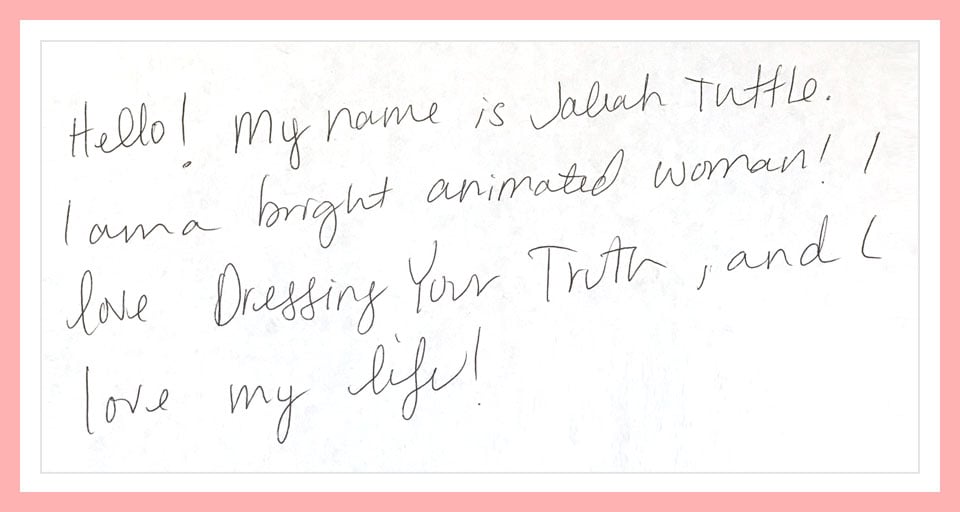 Hello! My name is Jaliah Tuttle.
I am a bright animated woman! I
love Dressing Your Truth, and I
love my life!